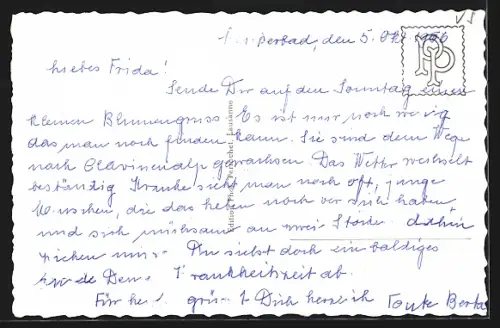 den 5. Okt. 1956
Liebes Frida!
Sende Dir auf den Sonntag einen
kleinen Blumengruss. Es ist nur noch wenig
das man noch finden kann. Sie sind dem Wege
nach gewachsen. Das Wetter wechselt
beständig Kranke sieht man noch oft, junge
Menschen, die das Leben noch vor sich haben,
und sich mühsam an zwei Stöcken dahin
ziehen müssen. Du siehst doch ein baldiges
Ende Deiner Krankheitszeit ab.
Für heute grüsst Dich herzlich Tante Berta
PP
Edition Photo Perrochet, Lausanne